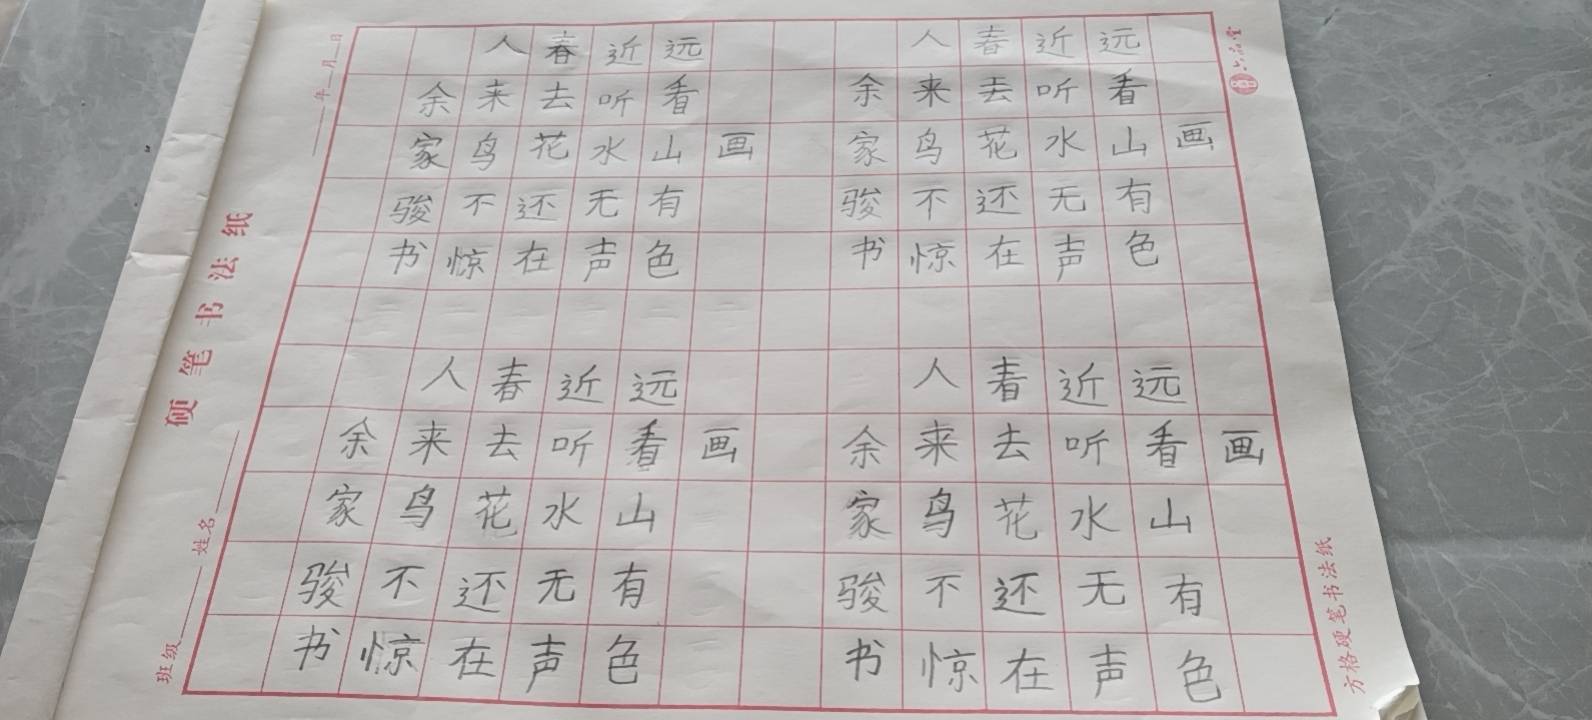 画
远看山有色
近听水无声
春去花还在
人来鸟不惊
余家骏书
画
远看山有色
近听水无声
春去花还在
人来鸟不惊
余家骏书
画
远看山有色
近听水无声
春去花还在
人来鸟不惊
余家骏书
画
远看山有色
近听水无声
春去花还在
人来鸟不惊
余家骏书
硬笔书法纸
班级 姓名 年 月 日
方格硬笔书法纸
六品堂